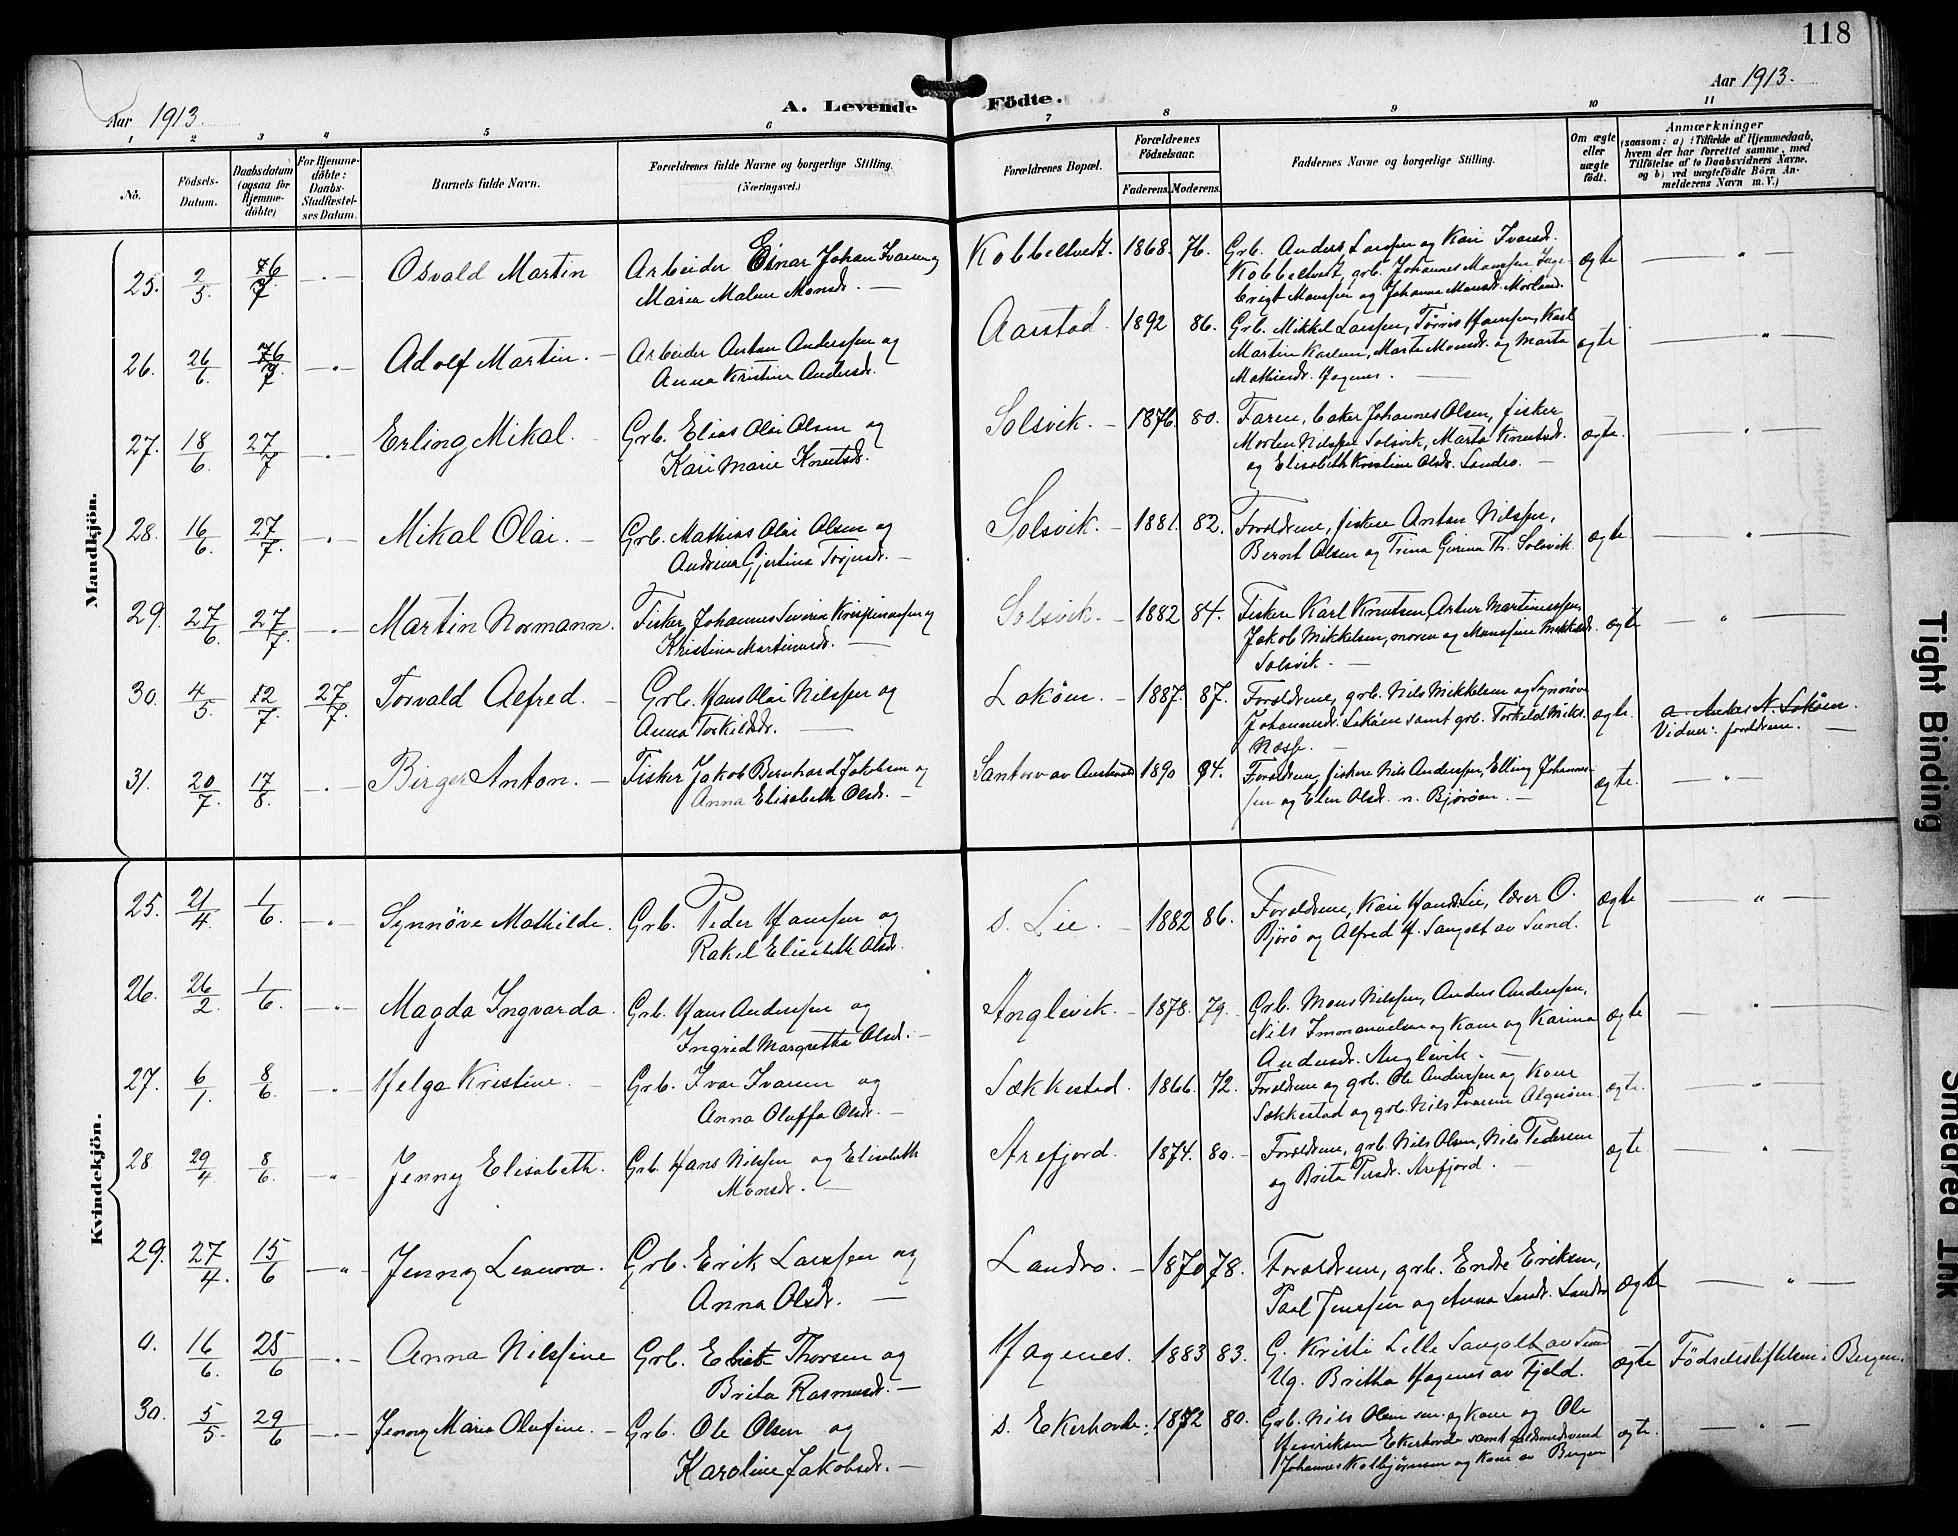 118
Aar 1913.
A. Levende Födte.
Aar 1913.
1 2 3 4 5 6 7 8 9 10 11
No.
Födsels-Datum.
Daabsdatum (ogsaa for Hjemme-döbte)
For Hjemme-döbte: Daabs-Stadfæstel-ses Datum.
Barnets fulde Navn.
Forældrenes fulde Navne og borgerlige Stilling. (Næringsvei.)
Forældrenes Bopæl.
Forældrenes Födselsaar.
Faderens. Moderens.
Faddernes Navne og borgerlige Stilling.
Om ægte eller uægte födt.
Anmærkninger
(saasom: a) i Tilfælde af Hjemmedaab, hvem der har forrettet samme, med Tilföielse af to Daabsvidners Navne. og b) ved uægtefödte Börn An-melderens Navn m. V.)
Mandkjön.
25. 2/5. 6/7 Osvald Martin Arbeider Einar Johan Ivarsen og Kobbeltvedt. 1868. 76. Grb. Anders Larssen og Kari Ivarsd. ægte
Maria Malene Monsd. Kobbeltvedt, grb. Johannes Monssen, Inge-
brigt Monssen og Johanna Monsd. Morland.
26. 26/6. 6/7 Adolf Martin. Arbeider Anton Anderssen og Aarstad. 1892 86. Grb. Mikkel Larssen, Törris Hanssen, Karl ægte
Anna Kristine Andersd. Martin Karlsen, Marta Monsd. og Marta
Mathiasd. Hagenes.
27. 18/6. 27/7 Erling Mikal. Grb. Elias Olai Olsen og Solsvik. 1876. 80. Faren, baker Johannes Olsen, fisker ægte.
Kari Marie Knutsd. Morten Nilssen Solsvik, Marta Knutsd.
og Elisabeth Kristine Olsd. Landro.
28. 16/6. 27/7. Mikal Olai. Grb. Mathias Olai Olsen og Solsvik. 1881. 82. Forældrene, fiskere Anton Nilssen, ægte
Andrina Gjertina Torjersd. Bernt Olsen og Trina Gurina Th. Solsvik.
29. 27/6. 27/7. Martin Normann. Fisker Johannes Severin Kristiansen og Solsvik. 1882 84. Fiskere Karl Knutsen, Artur Martinussen, ægte
Kristina Martinusd. Jakob Mikkelsen, moren og Monssine Mikkelsd.
Solsvik.
30. 4/5. 12/7. 27/7. Torvald Alfred. Grb. Hans Olai Nilssen og Lokøen. 1887. 87. Forældrene, grb. Nils Mikkelsen og Synnöve ægte. a. Anders N. Lokøen.
Anna Torkildsd. Johannesd. Lokøen samt grb. Torkild Miks. Vidner: forældrene.
Næsse.
31. 20/7. 17/8. Birger Anton. Fisker Jakob Bernhard Jakobsen og 1890 94. Forældrene, fiskere Nils Anderssen, Elling Johannes- ægte.
Anna Elisabeth Olsd. sen og Elen Olsd. n. Bjørøen.
Kvindekjön.
25. 21/4. 1/6. Synnöve Mathilde. Grb. Peder Hanssen og s. Lie. 1882 86. Forældrene, Kari Hansd. Lie, lærer O. ægte
Rakel Elisabeth Olsd. Bjørö og Alfred H. Sangolt av Sund.
26. 26/2 1/6. Magda Ingvarda. Grb. Hans Anderssen og Anglevik. 1878. 79. Grb. Mons Nilssen, Anders Anderssen, ægte
Ingrid Margretha Olsd. Nils Immanuelsen og Kone og Karina
Andersd. Anglevik.
27. 6/1. 8/6. Helga Kristine. Grb. Ivar Ivarsen og Sækkestad. 1866. 72. Forældrene og grb. Ole Anderssen og Kone ægte.
Anna Oluffa Olsd. Sækkestad og grb. Nils Ivarsen Algerøen.
28 29/4. 8/6. Jenny Elisabeth. Grb. Hans Nilssen og Elisabeth Arefjord. 1874. 80. Forældrene, grb. Nils Olsen, Nils Pedersen ægte
Monsd. og Brita Persd. Arefjord.
29. 27/4. 15/6 Jenny Leonora. Grb. Erik Larssen og Landro. 1870 78. Forældrene, grb. Endre Eriksen, ægte
Anna Olsd. Paal Jenssen og Anna Larsd. Landro
0. 16/6. 25/6 Anna Nilssine Grb. Thorsen og Hagenes. 1883 83. G. Kristi Lille Sangolt av Sund ægte Födselsstiftelsen i Bergen.
Brita Rasmusd. Ug. Britha Hagenes av Fjeld.
30. 5/5. 29/6 Jenny Maria Olufine. Grb. Ole Olsen og s. Ekerhovde. 1872 80. Grb. Nils Olsen sen. og Kone og Ole ægte.
Karoline Jakobsd. Henriksen Ekerhovde samt
Johannes Kolbjørnsen og Kone av Bergen
Tight Binding
Smeared Ink